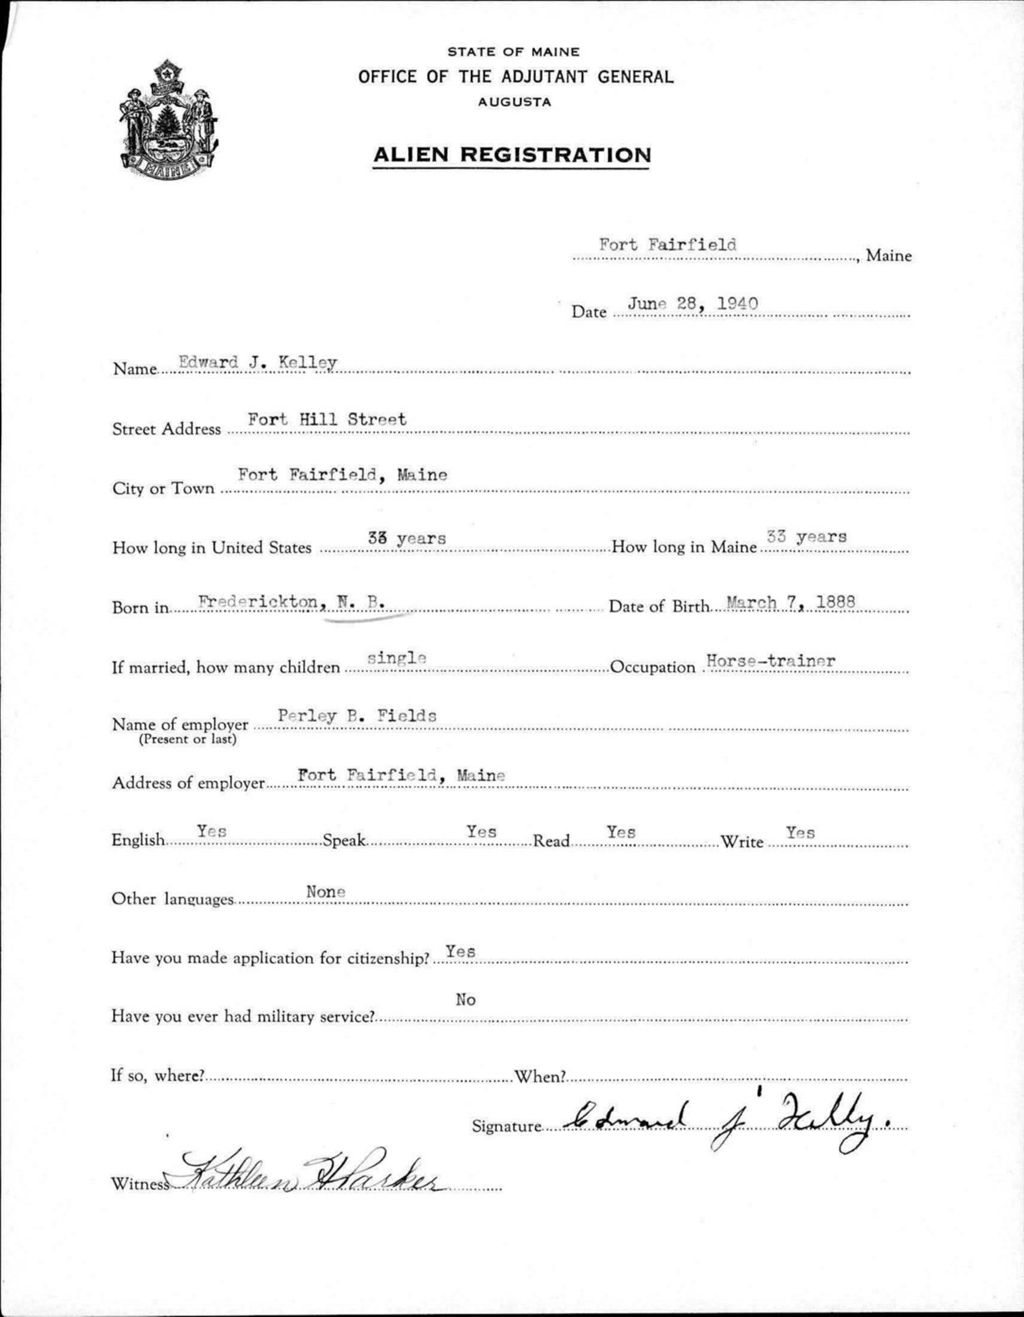 STATE OF MAINE
OFFICE OF THE ADJUTANT GENERAL
AUGUSTA
ALIEN REGISTRATION
MAINE
Fort Fairfield, Maine
Date June 28, 1940
Name Edward J. Kelley
Street Address Fort Hill Street
City or Town Fort Fairfield, Maine
How long in United States 33 years How long in Maine 33 years
Born in Frederickton, N. B. Date of Birth March 7, 1888
If married, how many children single Occupation Horse-trainer
Name of employer Perley B. Fields
(Present or last)
Address of employer Fort Fairfield, Maine
English Yes Speak Yes Read Yes Write Yes
Other languages None
Have you made application for citizenship? Yes
Have you ever had military service? No
If so, where? When?
Signature Edward J Kelly.
Witness Kathleen H Parker